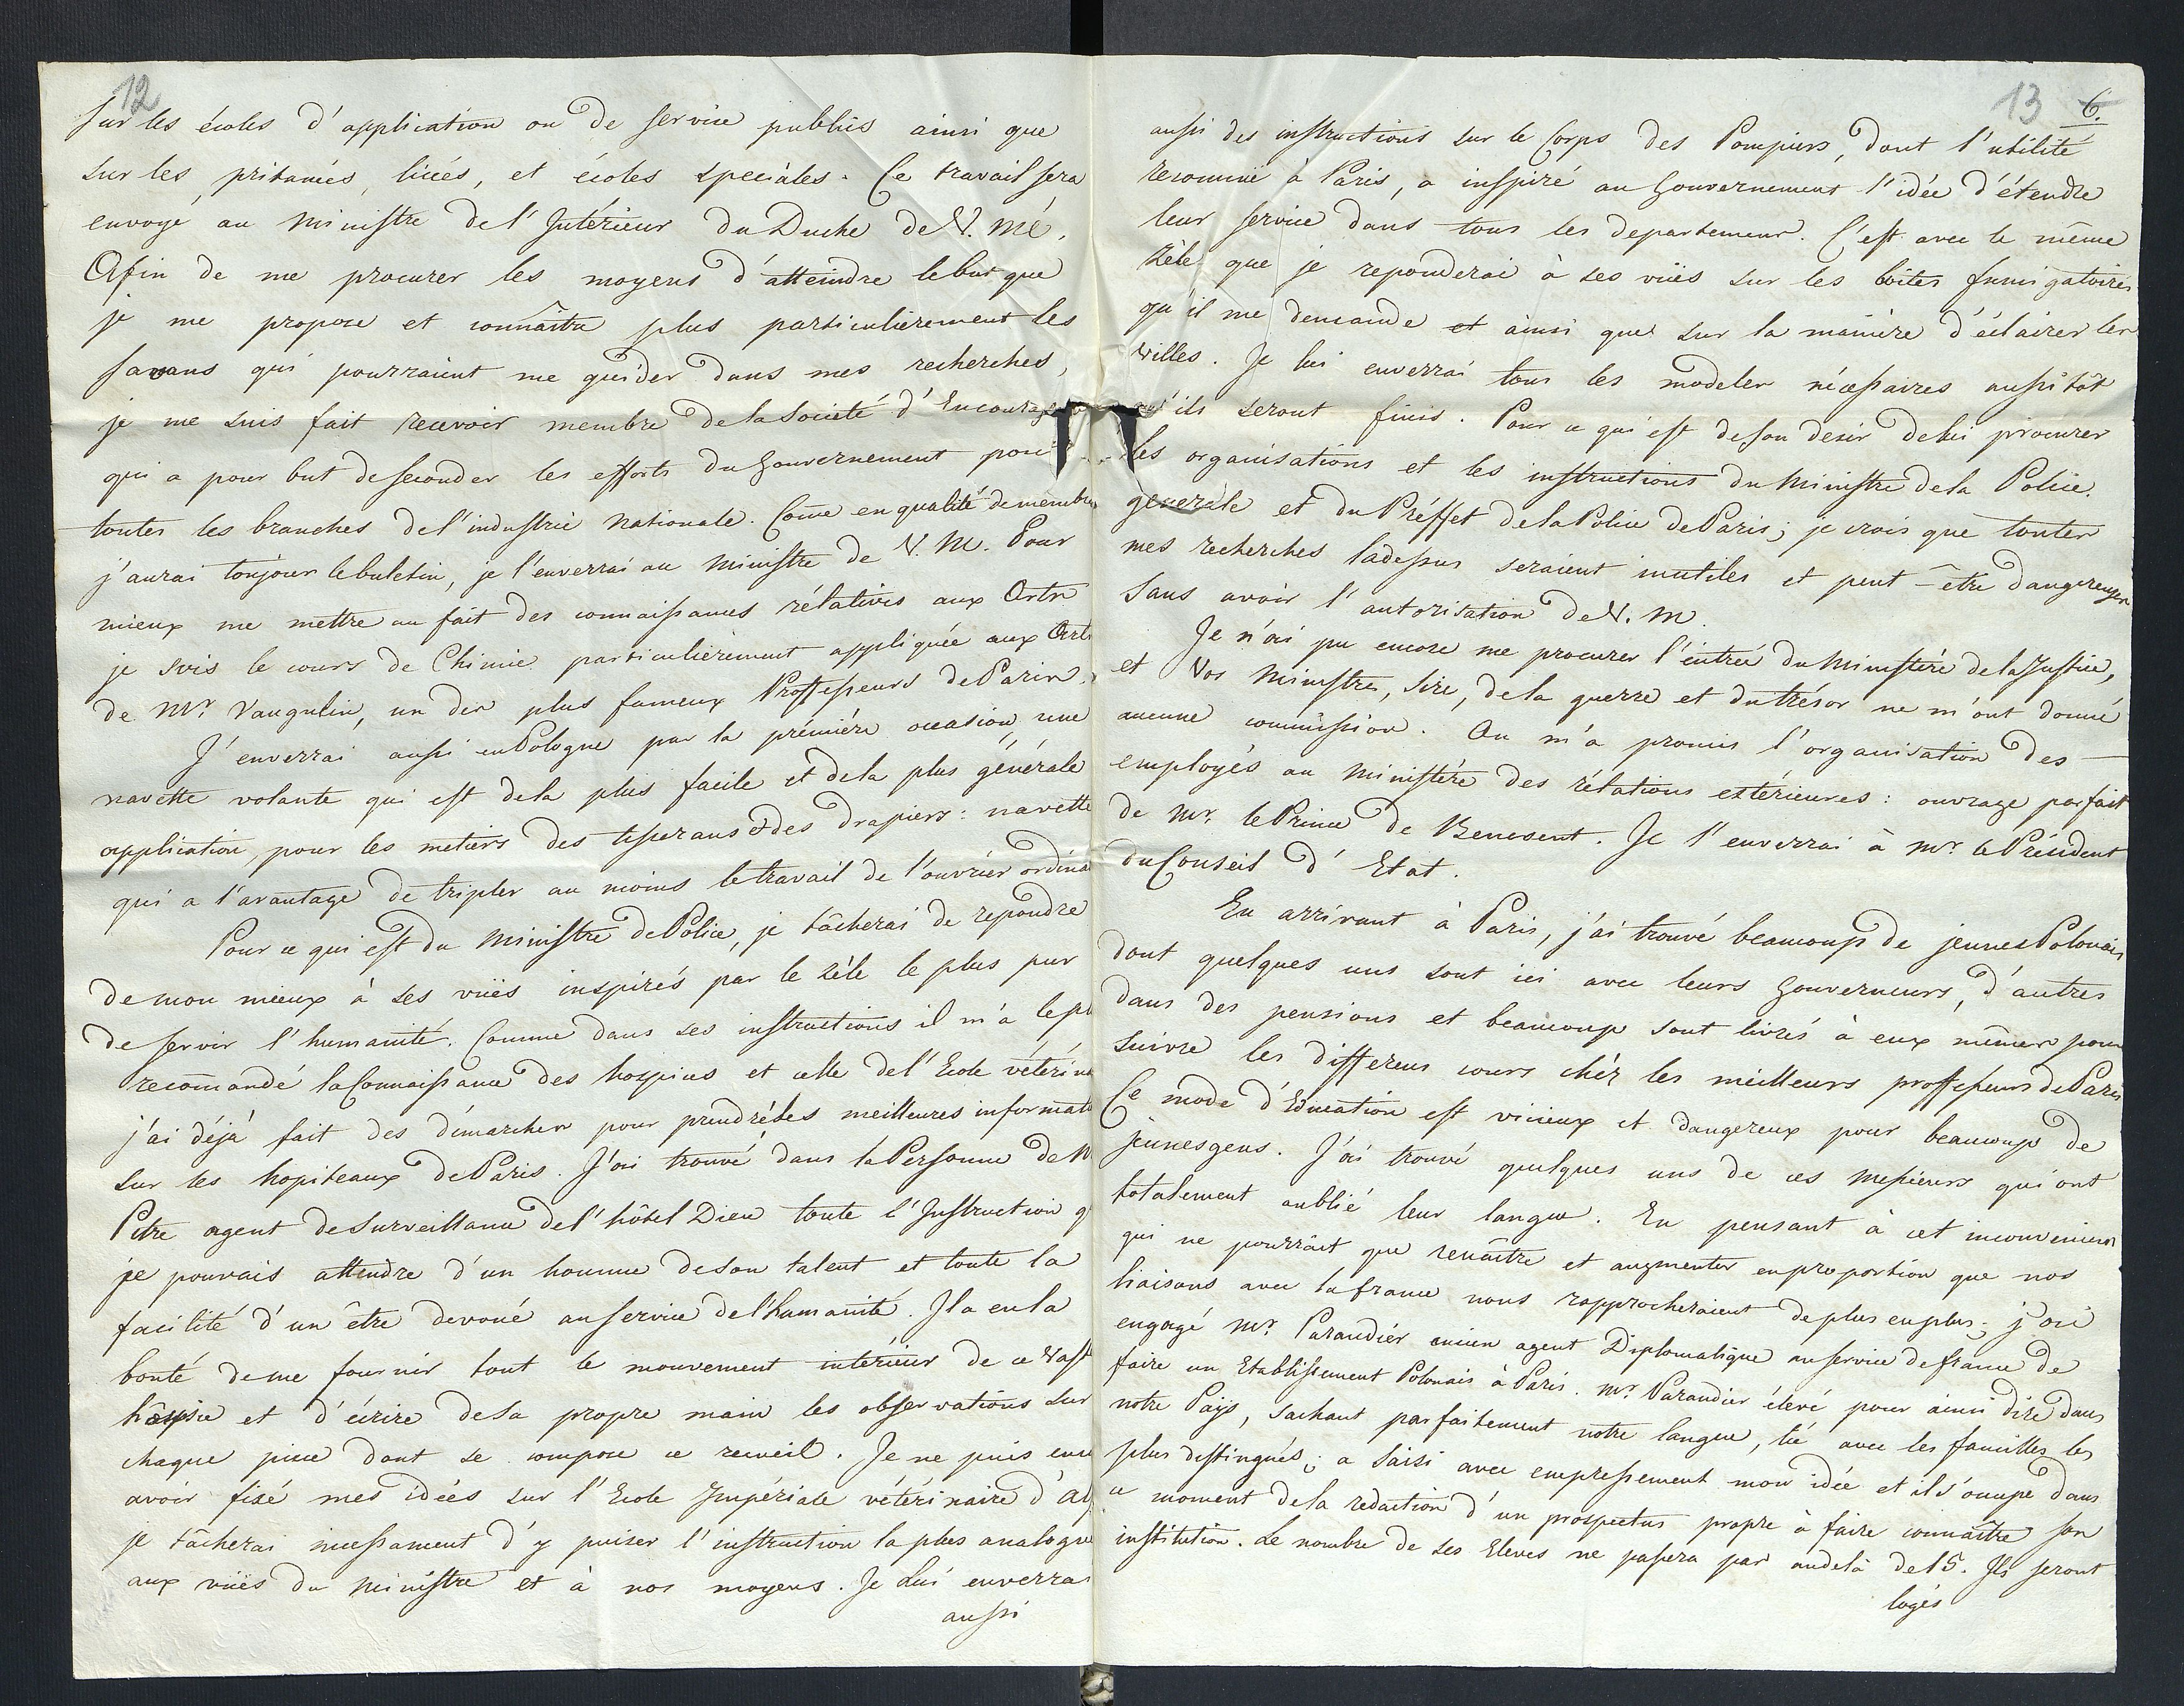 12
sur les écoles d'application ou de service publics ainsi que
sur les pritanées, licées, et écoles speciàles. Ce travail sera
envoyé au Ministre de l'Intérieur du Duché de V. Mé.
Afin de me procurer les moyens d'atteindre le but que
je me propose et connaître plus particulièrement les
savans qui pourraient me guider dans mes recherches,
je me suis fait recevoir membre de la Societé d'Encourage
qui a pour but de seconder les efforts du Gouvernement pour
toutes les branches de l'industrie nationale. Come en qualité de membre
j'aurai toujour le buletin, je l'enverrai au Ministre de V. M. Pour
mieux me mettre au fait des connaissances rélatives aux Arts
je suis le cours de Chimie particulièrement appliquée aux Arts
de Mr. Vauqulin, un des plus fameux Proffesseurs de Paris.
J'enverrai aussi en Pologne par la prémière occasion, une
navette volante qui est de la plus facile et de la plus générale
application pour les metiers des tisserans & des drapiers: navette
qui a l'avantage de tripler au moins le travail de l'ouvrier ordina
Pour ce qui est du Ministre de Police, je tâcherai de repondre
de mon mieux à ses vuës inspirés par le zèle le plus pur
de servir l'humanité. Comme dans ses instructions il m'a le pl
recomandé la Connaissance des hospices et celle de l'Ecole vétérina
j'ai déjà fait des démarches pour prendre les meilleures informati
sur les hopiteaux de Paris. J'ai trouvé dans la Personne de M
Petre agent de surveillance de l'hôtel Dieu toute l'Instruction q
je pouvais attendre d'un homme de son talent et toute la
facilité d'un être devoué au service de l'humanité. Il a eu la
bonté de me fournir tout le mouvement intérieur de ce vast
hospice et d'écrire de sa propre main les observations sur
chaque piece dont se compose ce recueil. Je ne puis enco
avoir fixé mes idées sur l'Ecole Impériale vétérinaire d'Al
je tâcherai incessament d'y puiser l'instruction la plus analogue
aux vuës du Ministre et à nos moyens. Je lui enverrai
aussi
13 6.
aussi des instructions sur le Corps des Pompiers, dont l'utilité
reconnuë à Paris, a inspiré au Gouvernement l'idée d'étendre
leur service dans tous les departemens. C'est avec le même
zèle que je reponderai à ses vuës sur les boites fumigatoires
qu'il me demande et ainsi que sur la manière d'éclairer les
villes. Je lui enverrai tous les modeles nécessaires aussitôt
qu'ils seront finis. Pour ce qui est de son desir de lui procurer
les organisations et les instructions du Ministre de la Police
generale et du Préffet de la Police de Paris; je crois que toutes
mes recherches ladessus seraient inutiles et peut-être dangereuses
sans avoir l'autorisation de V. M.
Je n'ai pu encore me procurer l'entrée du Ministère de la Justice,
et Vos Ministres, Sire, de la guerre et du trésor ne m'ont donné
aucune commission. On m'a promis l'organisation des
employés au Ministère des rélations extérieures: ouvrage parfait
de Mr. le Prince de Benevent. Je l'enverrai à Mr. le Président
du Conseil d'Etat.
En arrivant à Paris, j'ai trouvé beaucoup de jeunes Polonais
dont quelques uns sont ici avec leurs Gouverneurs, d'autres
dans des pensions et beaucoup sont livrés à eux mêmes pour
suivre les differens cours chéz les meilleurs proffesseurs de Paris
Ce mode d'Education est vicieux et dangereux pour beaucoup de
jeunes gens. J'ai trouvé quelques uns de ces messieurs qui ont
totalement oublié leur langue. En pensant à cet inconvenient
qui ne pourrait que renaître et augmenter en proportion que nos
liaisons avec la france nous rapprocheraient de plus en plus; j'ai
engagé Mr. Parandiér ancien agent Diplomatique au service de france de
faire un Etablissement Polonais à Paris. Mr. Parandier élevé pour ainsi dire dans
notre Pays, sachant parfaitement notre langue, lié avec les familles les
plus distingués; a saisi avec empressement mon idée et il s'ocupe dans
ce moment de la redaction d'un prospectus propre à faire connaître son
institution. Le nombre de ses Eleves ne passera pas audelà de 15. Ils seront
logés